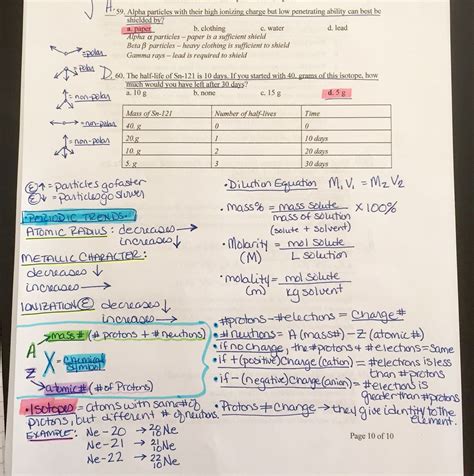 59. Alpha particles with their high ionizing charge but low penetrating ability can best be
shielded by?
a. paper b. clothing c. water d. lead
Alpha α particles – paper is a sufficient shield
Beta β particles – heavy clothing is sufficient to shield
Gamma rays – lead is required to shield
D 60. The half-life of Sn-121 is 10 days. If you started with 40. grams of this isotope, how
much would you have left after 30 days?
a. 10 g b. none c. 15 g d. 5 g
Mass of Sn-121 Number of half-lives Time
40. g 0 0
20.g 1 10 days
10. g 2 20 days
5. g 3 30 days
= polar
= polar
= non-polar
= non-polar
= non-polar
E↑ = particles go faster
E↓ = particles go slower
• PERIODIC TRENDS •
ATOMIC RADIUS: decreases →
increases ↓
METALLIC CHARACTER:
decreases ↓
increases →
IONIZATION E decreases ↓
increases →
A → mass # (# protons + # neutrons)
X - chemical symbol
Z → atomic # (# of Protons)
• Isotopes = atoms with same # of
protons, but different # of neutrons.
EXAMPLE: Ne-20 → 20 10 Ne
Ne-21 → 21 10 Ne
Ne-22 → 22 10 Ne
• Dilution Equation M₁V₁ = M₂V₂
• mass% = mass solute / mass of solution × 100%
(solute + solvent)
• Molarity (M) = mol solute / L solution
• molality (m) = mol solute / kg solvent
• #protons - #electrons = charge #
• #neutrons = A (mass#) - Z (atomic #)
• if no charge, the # protons + # electrons = same
• if + (positive) charge (cation) = # electrons is less
than # protons
• if - (negative) charge (anion) = # electrons is
greater than # protons
• Protons ≠ change → they give identity to the
element.
Page 10 of 10